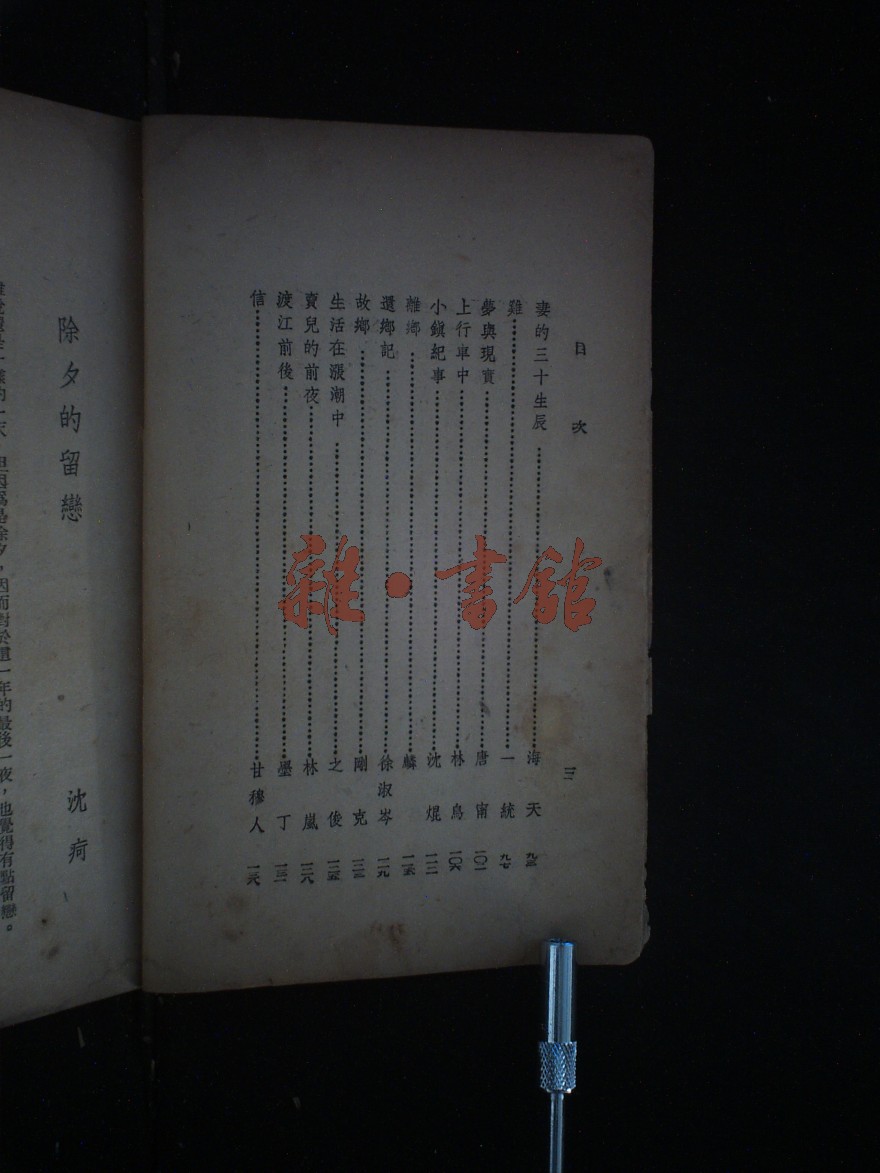 目次 三
妻的三十生辰……海天 九三
雞……一統 九七
夢與現實……唐甯 一〇一
上行車中……林鳥 一〇六
小鎮紀事……沈焜 一一二
離鄉……麟 一一五
還鄉記……徐淑岑 一一九
故鄉……剛克
生活在漲潮中……之俊 一二五
賣兒的前夜……林嵐 一二八
渡江前後……墨丁 一三二
信……甘穆人
除夕的留戀
沈疴
是一樣的一天，但因爲是除夕，因而對於這一年的最後一夜，也覺得有點留戀。
雜·書館